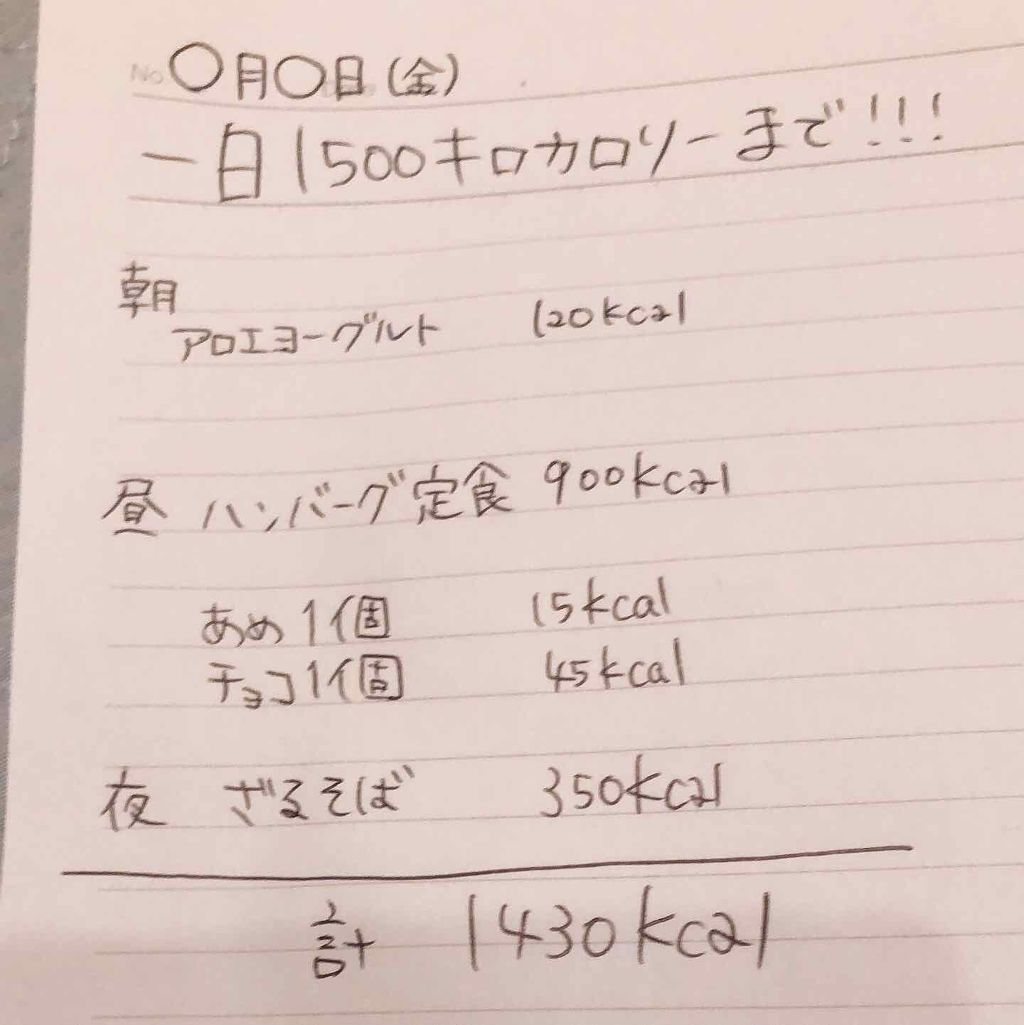 No.〇月〇日(金)
一日1500キロカロリーまで!!!
朝
アロエヨーグルト 120kcal
昼 ハンバーグ定食 900kcal
あめ1個 15kcal
チョコ1個 45kcal
夜 ざるそば 350kcal
計 1430kcal